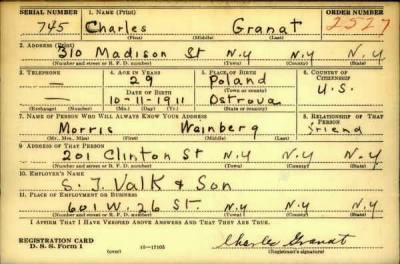 SERIAL NUMBER 1. NAME (Print) ORDER NUMBER
745 Charles Granat 2527
(First) (Middle) (Last)
2. ADDRESS (Print)
310 Madison St N.Y N.Y N.Y
(Number and street or R. F. D. number) (Town) (County) (State)
3. TELEPHONE 4. AGE IN YEARS 5. PLACE OF BIRTH 6. COUNTRY OF CITIZENSHIP
— 29 Poland U.S.
DATE OF BIRTH
— 10-11-1911 Ostrova
(Exchange) (Number) (Mo.) (Day) (Yr.) (Town or county) (State or country)
7. NAME OF PERSON WHO WILL ALWAYS KNOW YOUR ADDRESS 8. RELATIONSHIP OF THAT PERSON
Morris Weinberg friend
(Mr., Mrs., Miss) (First) (Middle) (Last)
9. ADDRESS OF THAT PERSON
201 Clinton St N.Y N.Y N.Y
(Number and street or R. F. D. number) (Town) (County) (State)
10. EMPLOYER'S NAME
S. J. Valk & Son
11. PLACE OF EMPLOYMENT OR BUSINESS
601 W. 26 St. N.Y N.Y N.Y
(Number and street or R. F. D. number) (Town) (County) (State)
I AFFIRM THAT I HAVE VERIFIED ABOVE ANSWERS AND THAT THEY ARE TRUE.
REGISTRATION CARD
D. S. S. Form 1 (over) 16—17105 Charles Granat
(Registrant's signature)